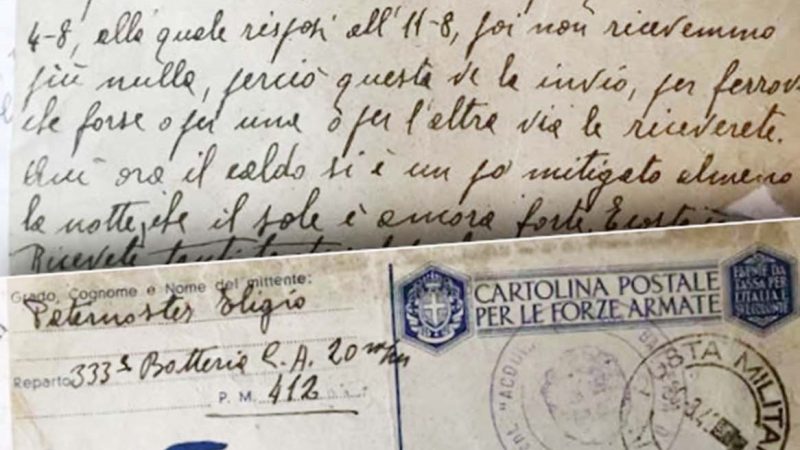 4-8, alla quale risposi all'11-8, poi non ricevemmo
più nulla, perciò questa ve la invio, per ferrov
che forse o per una o per l'altra via le riceverete.
Qui ora il caldo si è un po' mitigato almeno
la notte, che il sole è ancora forte.
Ricevete tanti
Grado, Cognome e Nome del mittente:
Paternoster Eligio
Reparto 333ª Batteria C.A. 20 m/m
P. M. 412
CARTOLINA POSTALE
PER LE FORZE ARMATE
ESENTE DA
TASSA PER
L'ITALIA E
POSTA MILITA